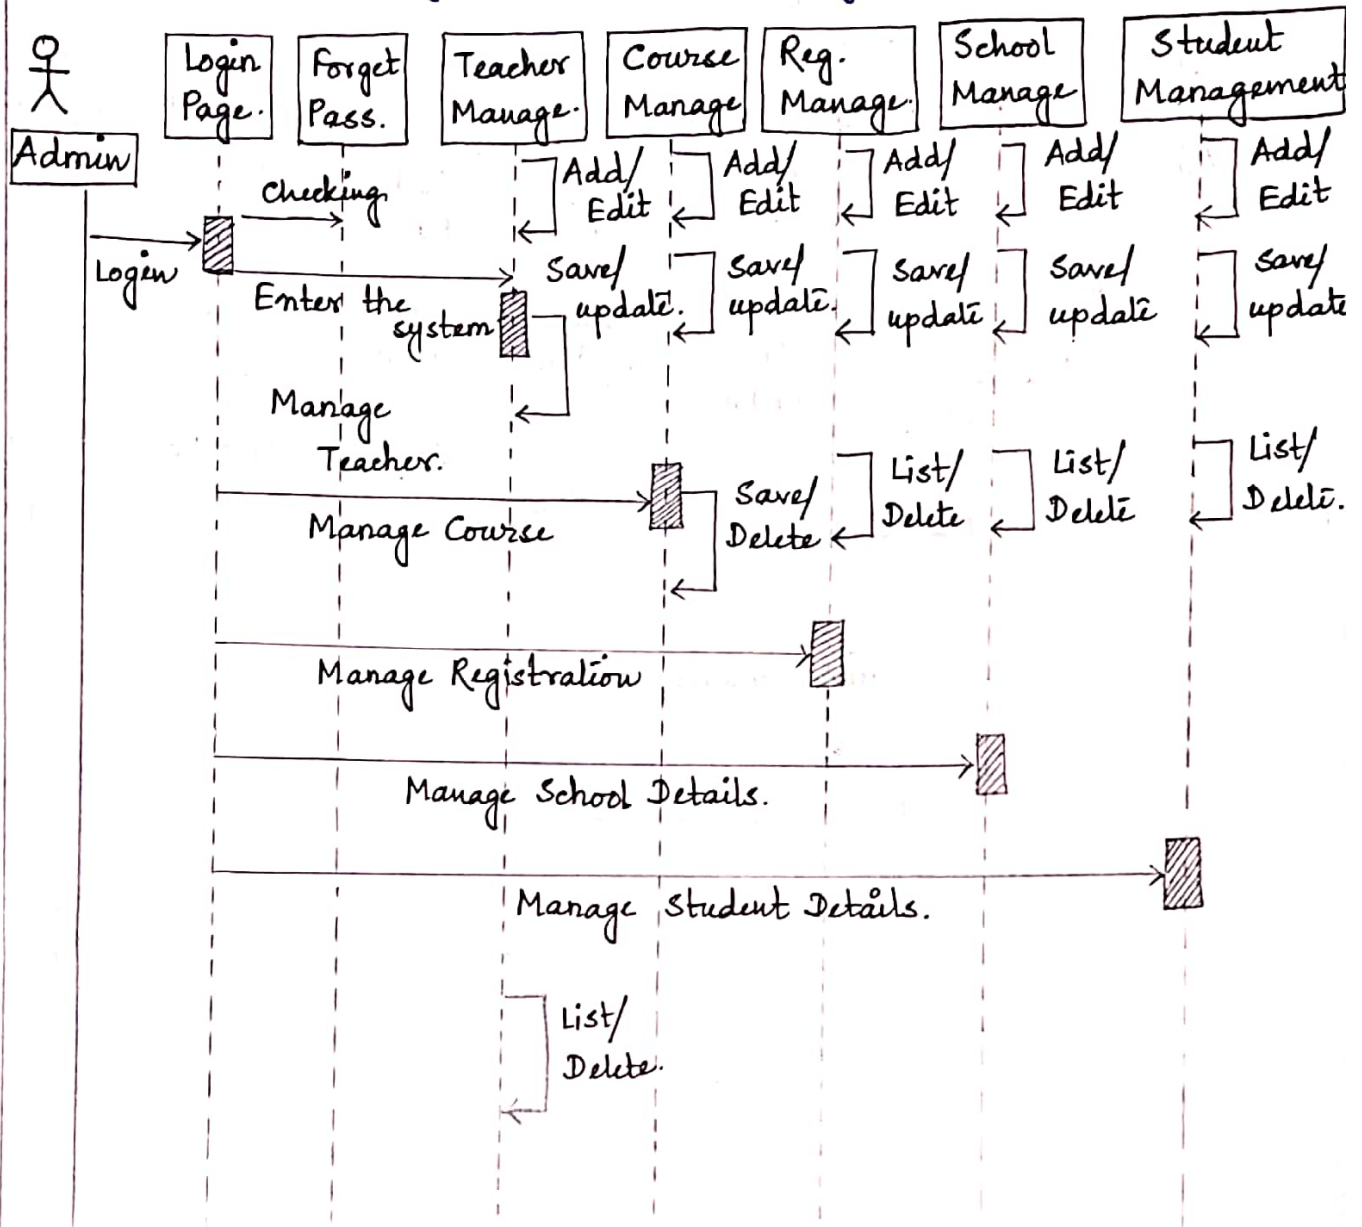 Login
Page.
Forget
Pass.
Teacher
Manage.
Course
Manage
Reg.
Manage.
School
Manage
Student
Management
Admin
Checking
Login
Enter the
system
Add/
Edit
Add/
Edit
Add/
Edit
Add/
Edit
Add/
Edit
Save/
update.
Save/
update.
Save/
update
Save/
update
Save/
update
Manage
Teacher.
Manage Course
Save/
Delete
List/
Delete
List/
Delete
List/
Delete.
Manage Registration
Manage School Details.
Manage Student Details.
List/
Delete.